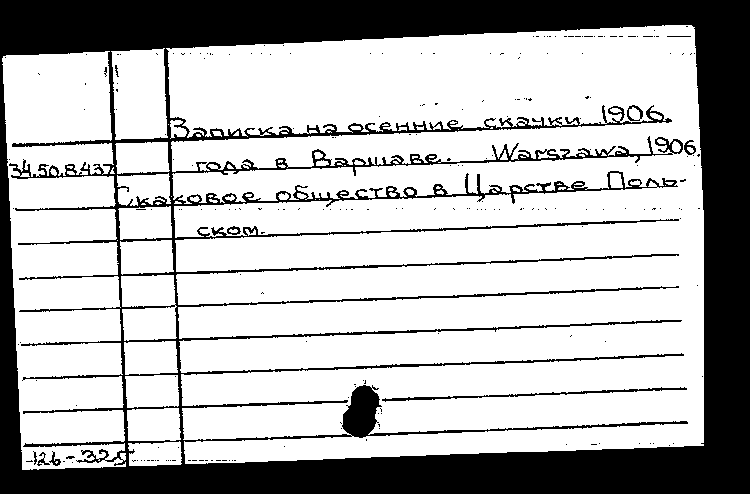 Записка на осенние скачки 1906.
34.50.8.437 года в Варшаве. Warszawa, 1906.
Скаковое общество в Царстве Поль-
ском.
126-325